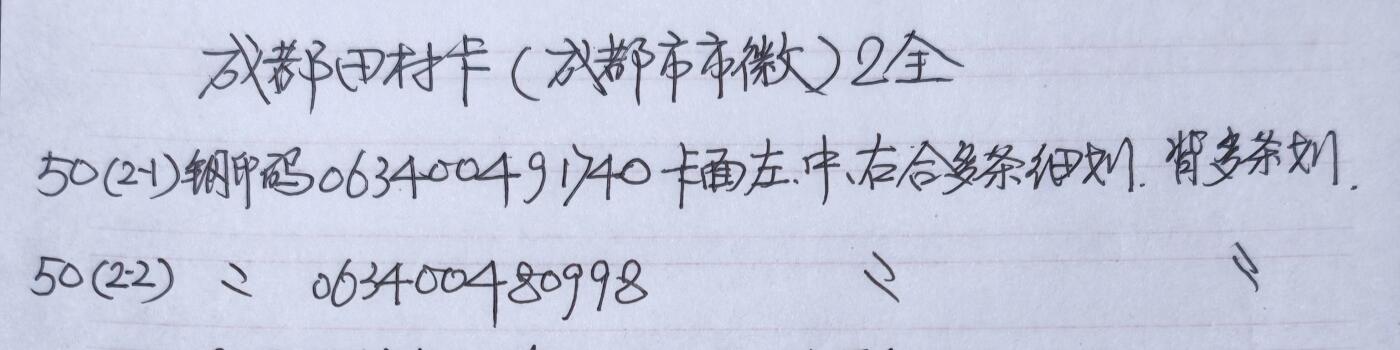 成都田村卡(成都市市徽)2全
50(2-1)钢印码063400491740卡面左、中、右合多条细划.背多条划.
50(2-2) 〃 063400480998 〃 〃